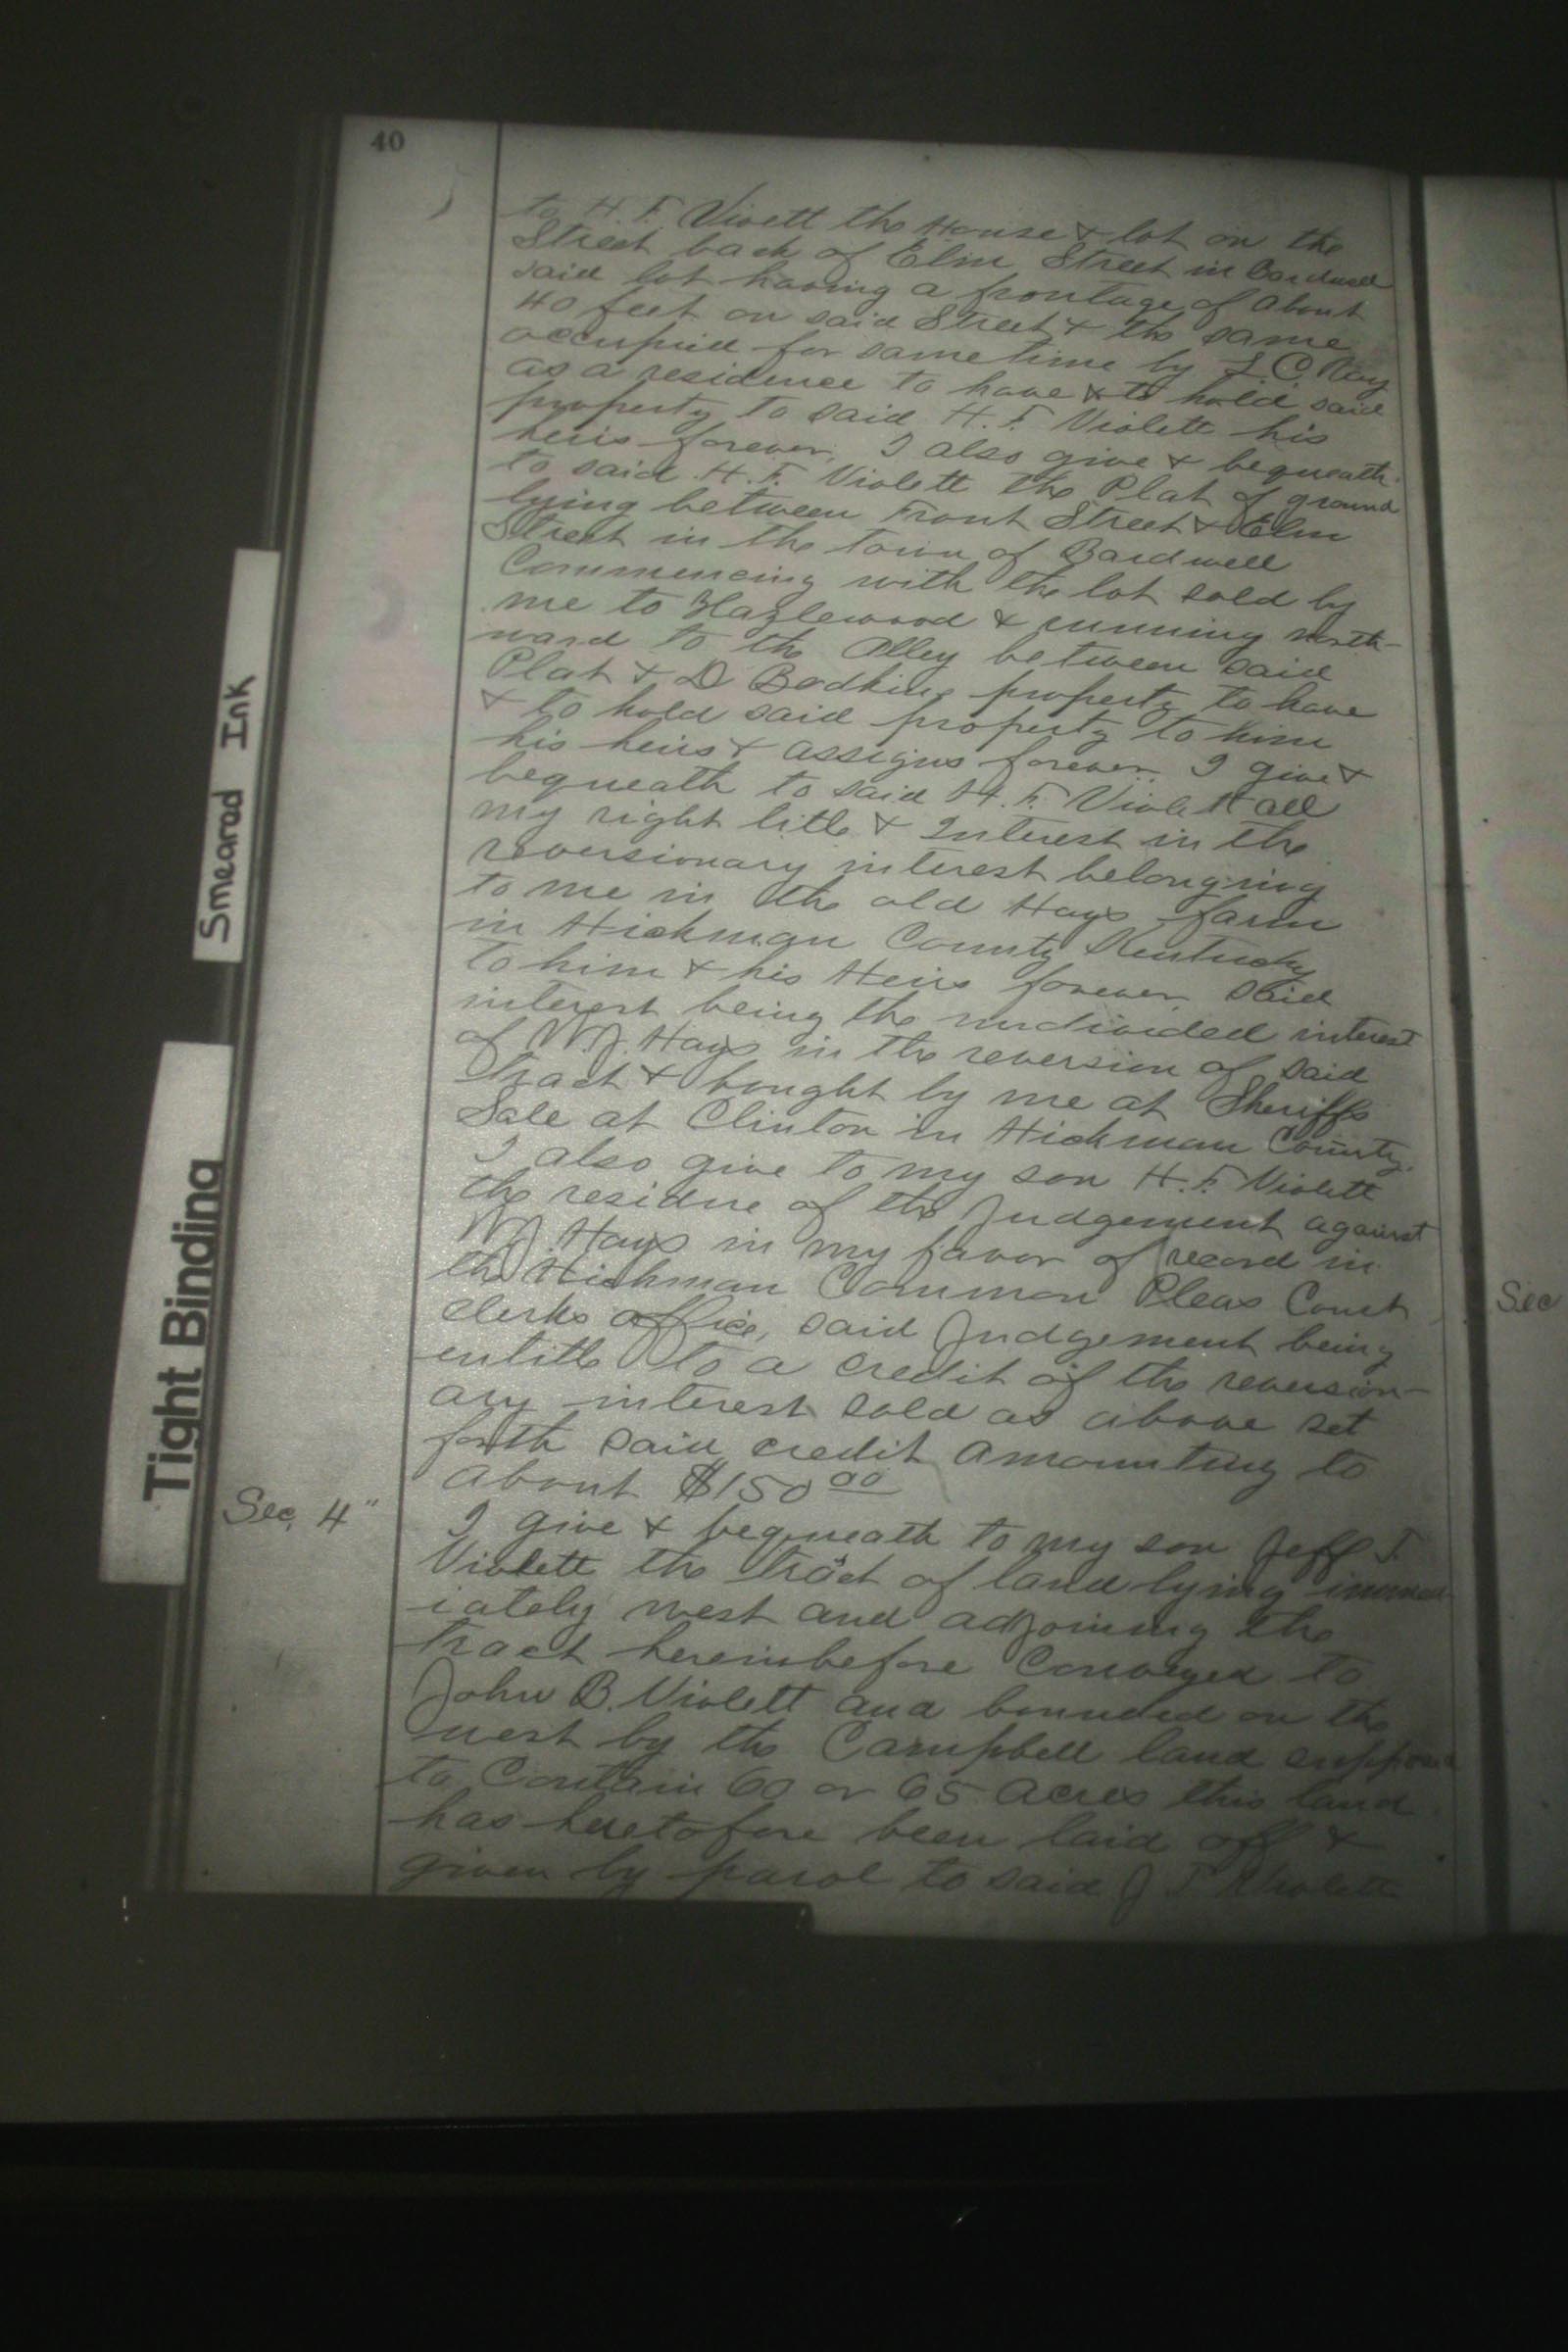 40
to H. F. Violett the House & lot on the
Street back of Elm Street in Bardwell
said lot having a frontage of about
40 feet on said Street & the same
occupied for sometime by
as a residence to have & to hold said
property to said H. F. Violett his
heirs forever. I also give & bequeath
to said H. F. Violett the Plat of ground
lying between Front Street & Elm
Street in the town of Bardwell
Commencing with the lot sold by
me to Hazlewood & running north-
ward to the Alley between said
Plat & D Bodkins property to have
& to hold said property to him
his heirs & assigns forever. I give &
bequeath to said H. F. Violett all
my right title & Interest in the
reversionary interest belonging
to me in the old Hays farm
in Hickman County Kentucky
to him & his Heirs forever said
interest being the undivided interest
of W. J. Hays in the reversion of said
tract & bought by me at Sheriffs
Sale at Clinton in Hickman County.
I also give to my son H. F. Violett
the residue of the Judgement against
W J Hays in my favor of record in
the Hickman Common Pleas Court
clerks office, said Judgement being
entitle to a credit of the reversion-
ary interest sold as above set
forth said credit amounting to
about $150 00
Sec. 4"
I give & bequeath to my son Jeff T.
Violett the tract of land lying immed
iately west and adjoining the
tract hereinbefore Conveyed to
John B. Violett and bounded on the
west by the Campbell land
to Contain 60 or 65 acres this land
has heretofore been laid off &
given by parol to said J T Violett
Sec
Smearad Ink
Tight Binding